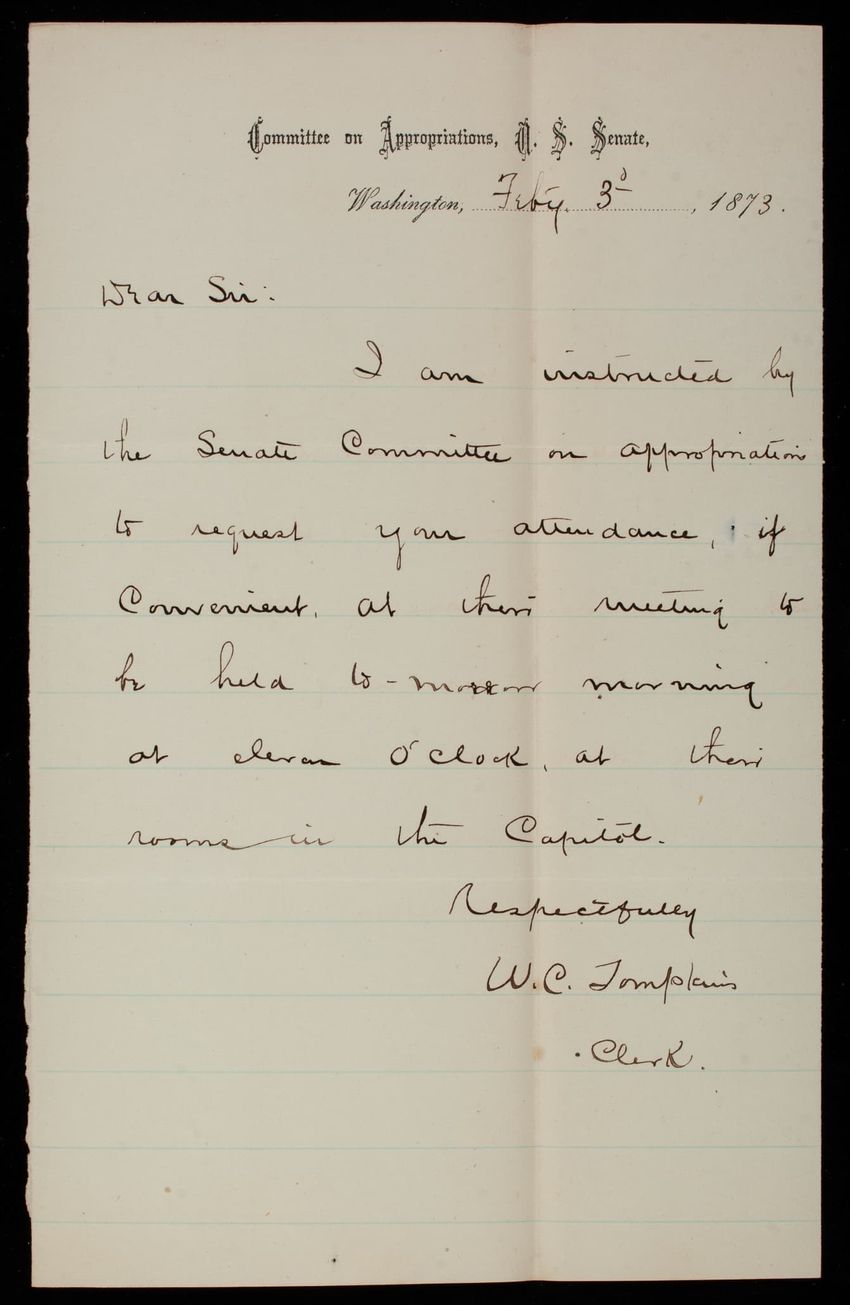 Committee on Appropriations, U. S. Senate,
Washington, Feby. 3d, 1873.
Dear Sir:
I am instructed by
the Senate Committee on appropriations
to request your attendance, if
Convenient, at their meeting to
be held to-morrow morning
at eleven O'Clock, at their
rooms in the Capitol.
Respectfully
W. C. Tompkins
Clerk.